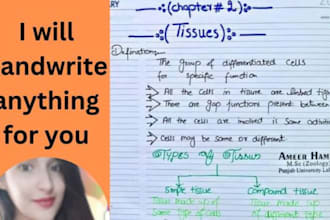 I will
handwrite
anything
for you
RY
(chapter # 2)
(Tissues)
Definition:
The group of differentiated cells
for specific function
All the cells in tissue are linked
There are gap junctions present between
All the cells are involved in same
Cells may be same or different
Types of Tissue
AMEER HAM
M.Sc (Zoology)
Punjab University La
Simple tissue
Compound tissue
Tissue made up of
Same type of cells
Tissue made up
of different